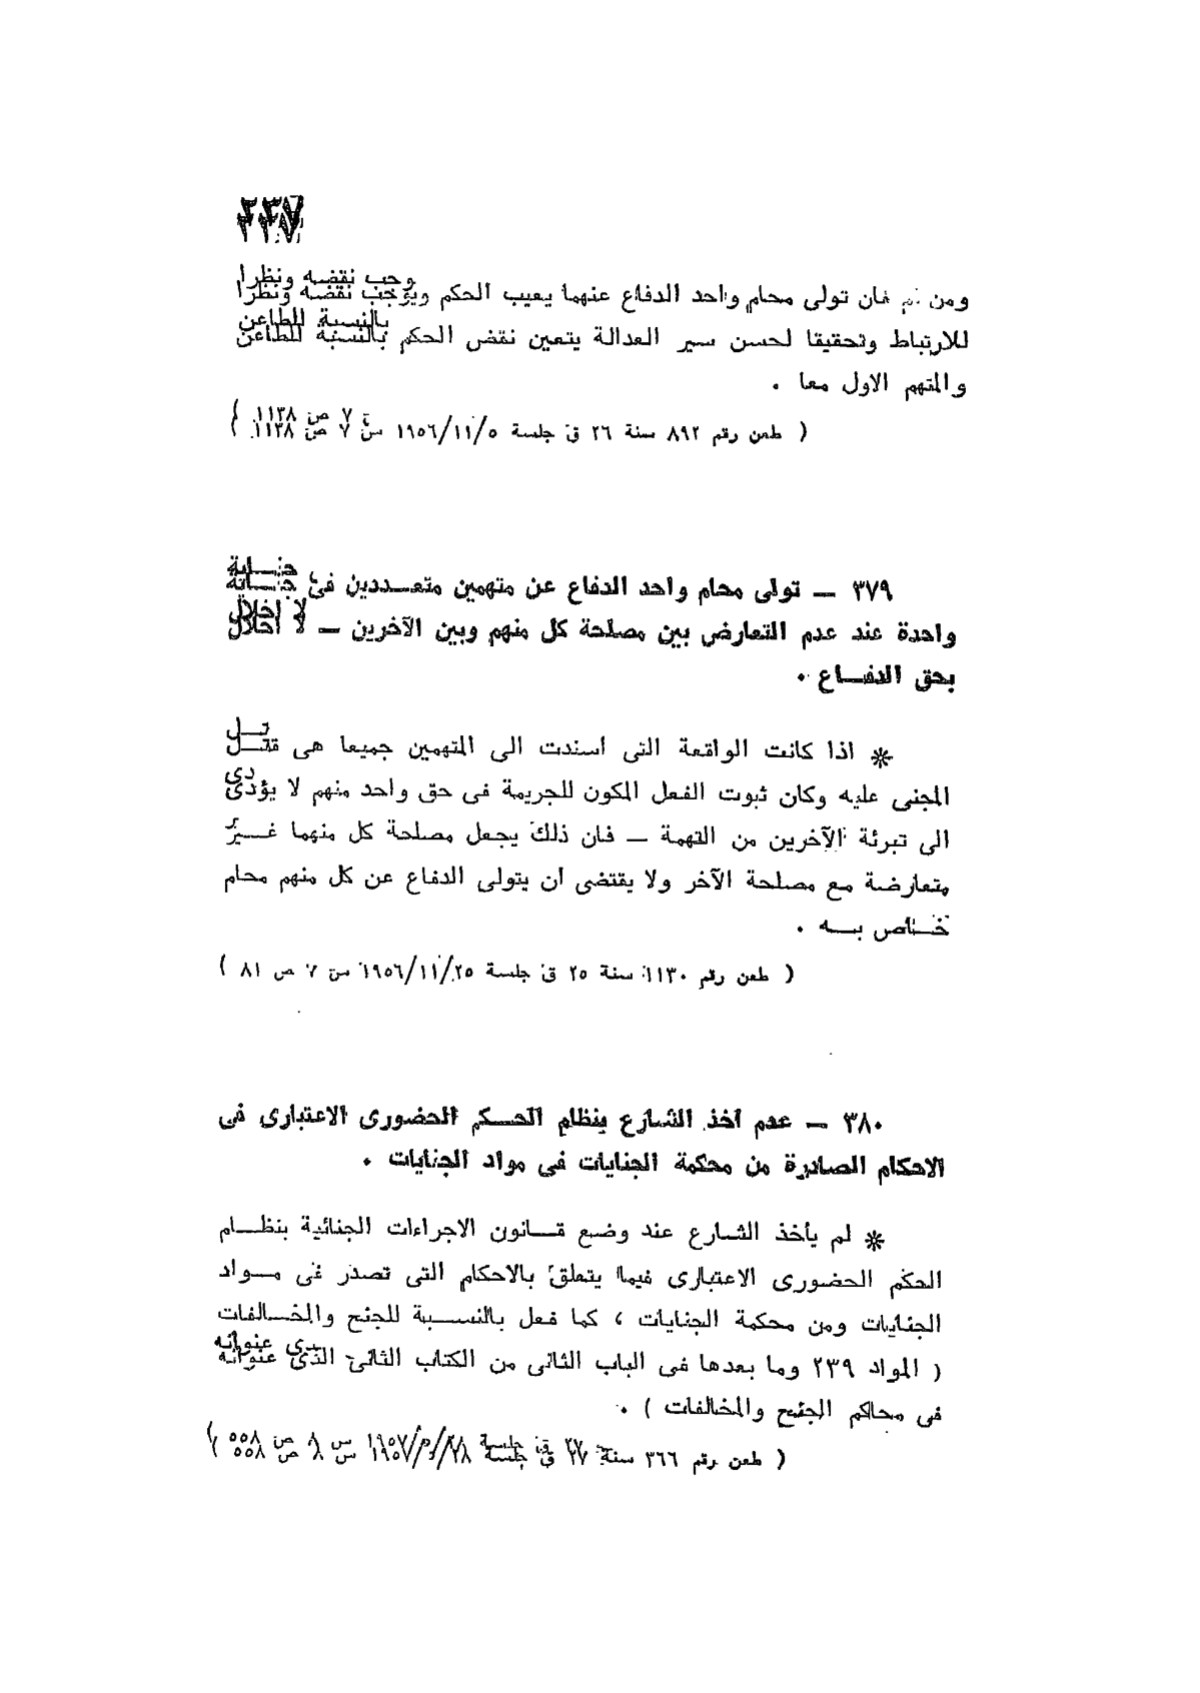 ٢٣٧
ومن ثم فان تولى محام واحد الدفاع عنهما يعيب الحكم ويوجب نقضه ونظرا
للارتباط وتحقيقا لحسن سير العدالة يتعين نقض الحكم بالنسبة للطاعن
والمتهم الاول معا .
( طعن رقم ٨٩٢ سنة ٢٦ ق جلسة ١٩٥٦/١١/٥ س ٧ ص ١١٣٨ )
٣٧٩ — تولى محام واحد الدفاع عن متهمين متعـــددين فى جنـــاية
واحدة عند عدم التعارض بين مصلحة كل منهم وبين الآخرين — لا اخلال
بحق الدفـــاع .
* اذا كانت الواقعة التى اسندت الى المتهمين جميعا هى قتـــل
المجنى عليه وكان ثبوت الفعل المكون للجريمة فى حق واحد منهم لا يؤدى
الى تبرئة الآخرين من التهمة — فان ذلك يجعل مصلحة كل منهما غـــير
متعارضة مع مصلحة الآخر ولا يقتضى أن يتولى الدفاع عن كل منهم محام
خـــاص بـــه .
( طعن رقم ١١٣٠ سنة ٢٥ ق جلسة ١٩٥٦/١١/٢٥ س ٧ ص ٨١ )
٣٨٠ — عدم أخذ الشارع بنظام الحـــكم الحضورى الاعتبارى فى
الاحكام الصادرة من محكمة الجنايات فى مواد الجنايات .
* لم يأخذ الشارع عند وضع قـــانون الاجراءات الجنائية بنظـــام
الحكم الحضورى الاعتبارى فيما يتعلق بالاحكام التى تصدر فى مـــواد
الجنايات ومن محكمة الجنايات ، كما فعل بالنســـبة للجنح والمخـــالفات
( المواد ٢٣٩ وما بعدها فى الباب الثانى من الكتاب الثانى الذى عنوانه
فى محاكم الجنح والمخالفات ) .
( طعن رقم ٣٦٦ سنة ٢٧ ق جلسة س ٨ ص ٥٥٨ )